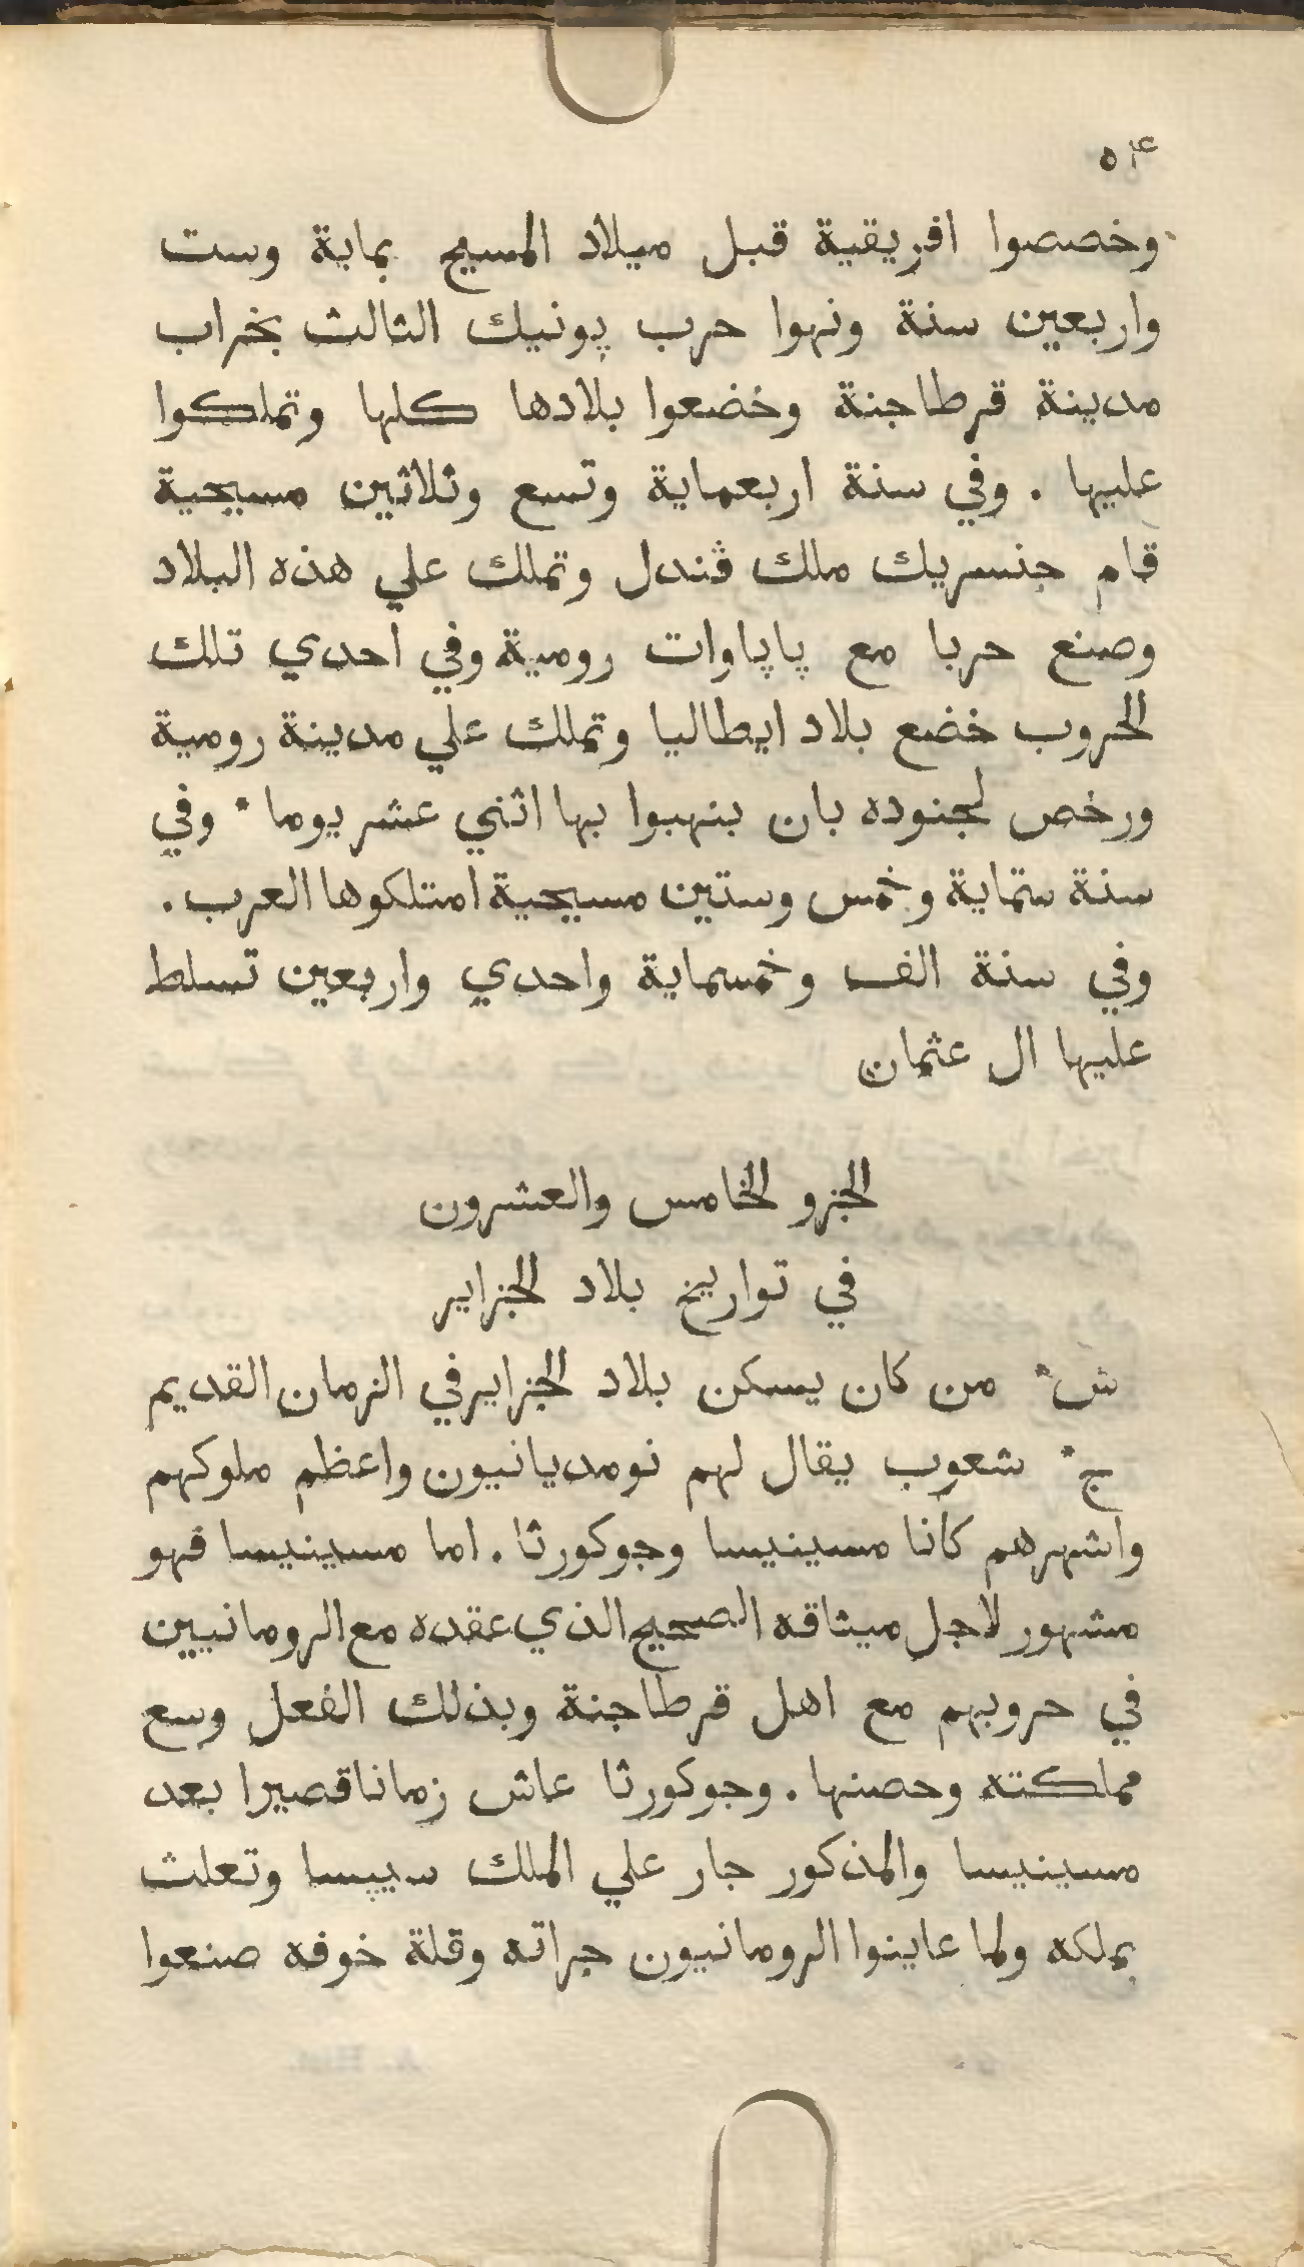 ٥٤
وخصصوا افريقية قبل ميلاد المسيح بماية وست
واربعين سنة ونهوا حرب پونيك الثالث بخراب
مدينة قرطاجنة وخضعوا بلادها كلها وتملكوا
عليها . وفي سنة اربعماية وتسع وثلاثين مسيحية
قام جنسريك ملك ڤندل وتملك علي هذه البلاد
وصنع حربا مع پاپاوات رومية وفي احدي تلك
الحروب خضع بلاد ايطاليا وتملك علي مدينة رومية
ورخص لجنوده بان بنهبوا بها اثني عشر يوما * وفي
سنة ستماية وخمس وستين مسيحية امتلكوها العرب .
وفي سنة الف وخمسماية واحدي واربعين تسلط
عليها ال عثمان
الجزو الخامس والعشرون
في تواريخ بلاد الجزاير
ش * من كان يسكن بلاد الجزاير في الزمان القديم
ج * شعوب يقال لهم نومديانيون واعظم ملوكهم
واشهرهم كانا مسينيسا وجوكورثا . اما مسينيسا فهو
مشهور لاجل ميثاقه الصحيح الذي عقده مع الرومانيين
في حروبهم مع اهل قرطاجنة وبذلك الفعل وسع
مملكته وحصنها . وجوكورثا عاش زمانا قصيرا بعد
مسينيسا والمذكور جار علي الملك سيپسا وتعلث
بملكه ولما عاينوا الرومانيون جراته وقلة خوفه صنعوا